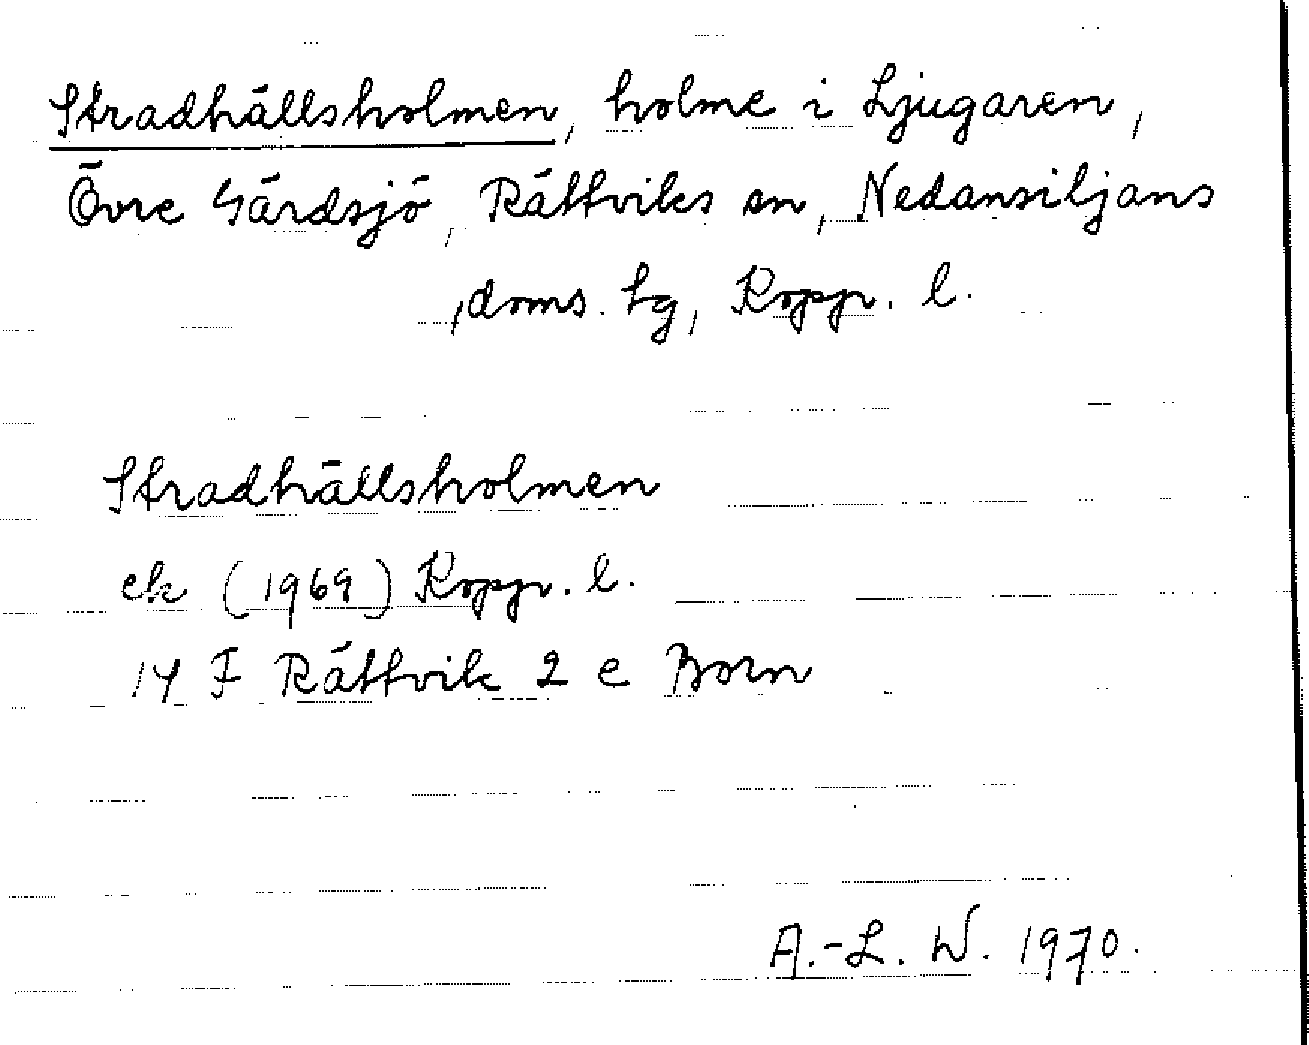 Stradhällsholmen, holme i Ljugaren,
Övre Gärdsjö, Rättviks sn, Nedansiljans
doms. hg, Kopp. l.
Stradhällsholmen
ek (1969) Kopp. l.
14 F Rättvik 2 e Born
A.-L. W. 1970.